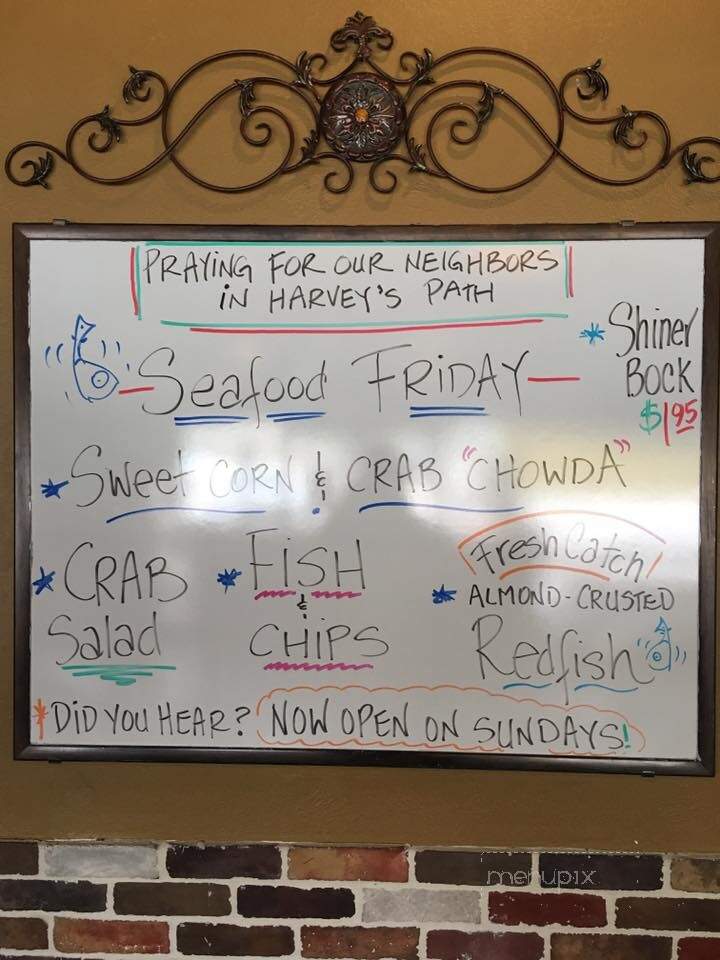 PRAYING FOR OUR NEIGHBORS
IN HARVEY'S PATH
* Shiner
BOCK
$1.95
- Seafood FRIDAY -
* Sweet CORN & CRAB "CHOWDA"
* CRAB
Salad
* FISH
&
CHIPS
Fresh Catch!
* ALMOND-CRUSTED
Redfish
* DID YOU HEAR? NOW OPEN ON SUNDAYS!
menupix